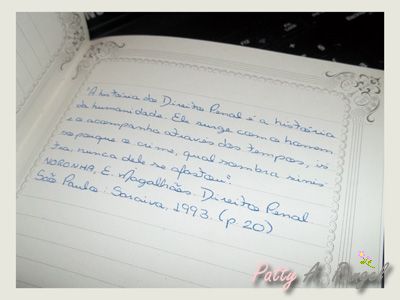 "A história do Direito Penal é a história
da humanidade. Ele surge com o homem
e o acompanha através dos tempos, is
so porque o crime, qual sombra sinis
tra, nunca dele se afastou".
NORONHA, E. Magalhães. Direito Penal
São Paulo: Saraiva, 1993. (p 20)
Patty A. Angel